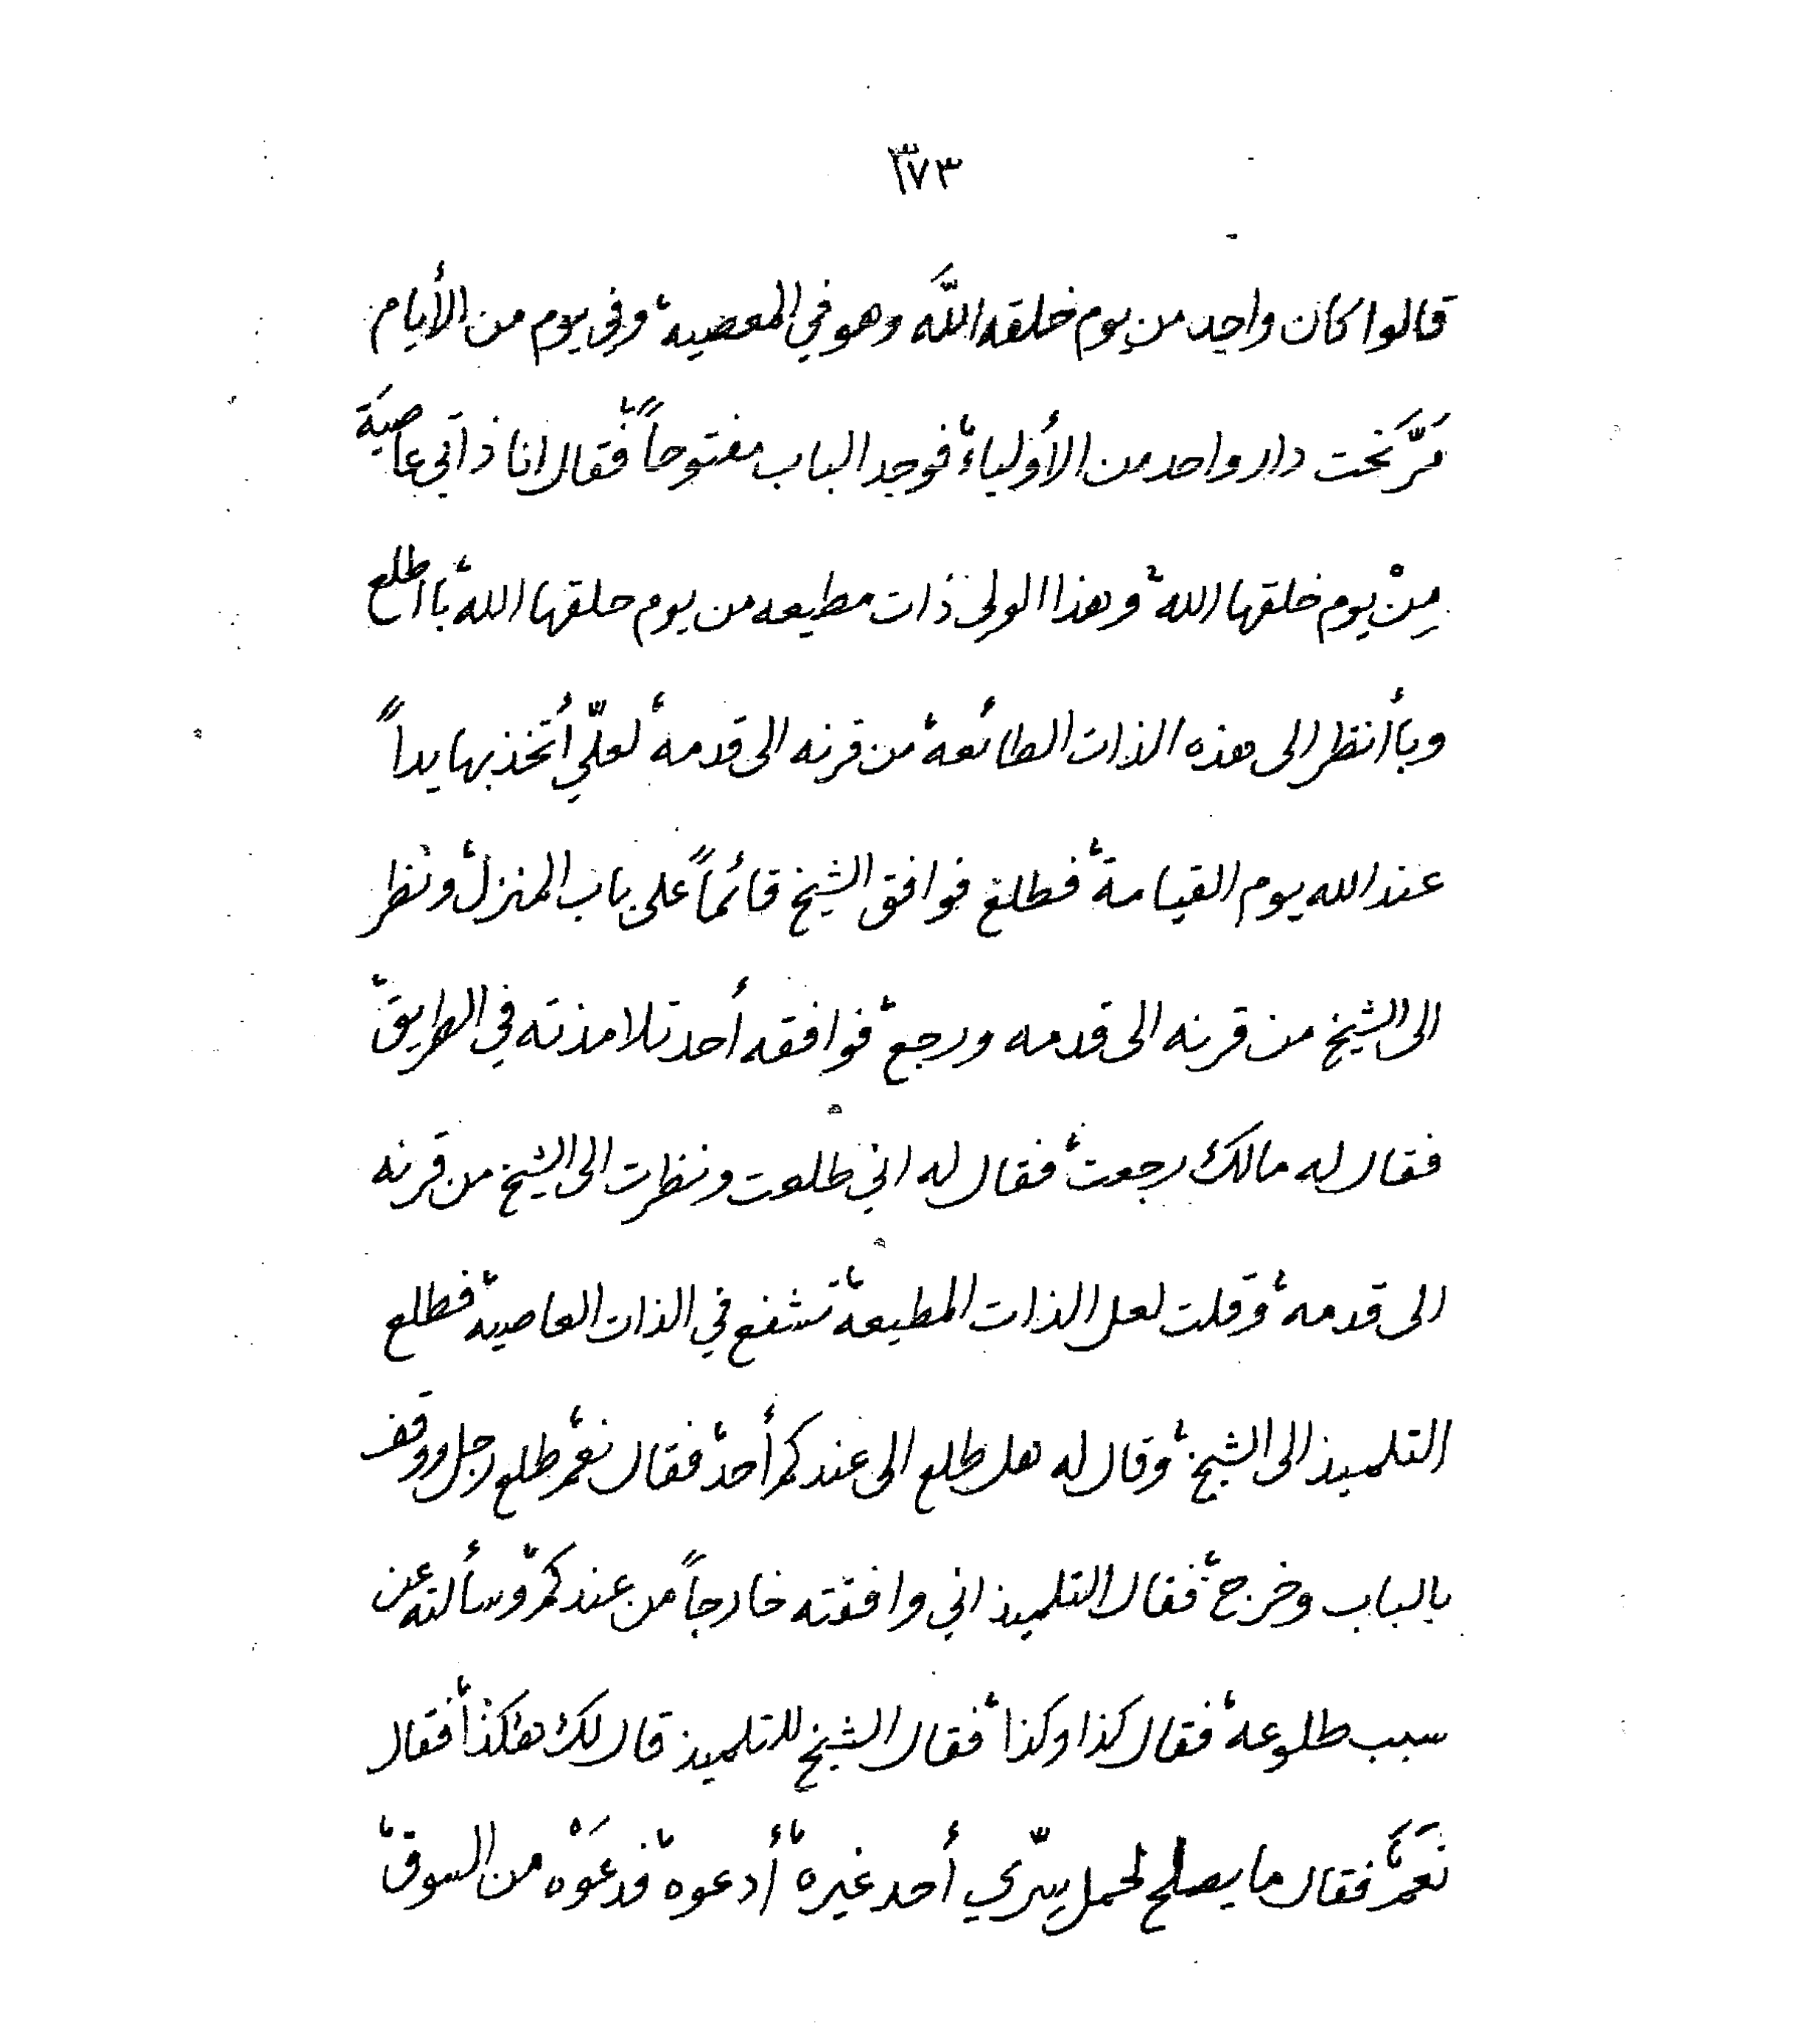 ٣٧٣
قالوا كان واحد من يوم خلقه اللَّه وهو في المعصيه، وفي يوم من الأيام
مَرَّ تحت دار واحد من الأولياء، فوجد الباب مفتوحاً، فقال انا ذاتي عاصيَة
مِنْ يوم خلقها الله، وهذا الولي ذات مطيعه من يوم خلقها الله، با اطلع
وبأنظر الى هذه الذات الطائعة، من قرنه الى قدمه، لعلّي أتخذ بها يداً
عند الله يوم القيامة، فطلع فوافق الشيخ قائماً على باب المنزل، ونظر
الى الشيخ من قرنه الى قدمه ورجع، فوافقه أحد تلامذته في الطريق،
فقال له مالك رجعت، فقال له اني طلعت ونظرت الى الشيخ من قرنه
الى قدمه، وقلت لعل الذات المطيعة، تشفع في الذات العاصيه، فطلع
التلميذ الى الشيخ، وقال له هل طلع الى عندكم أحد، فقال نعم، طلع رجل ووقف
بالباب وخرج، فقال التلميذ اني وافقته خارجاً من عندكم، وسألته عن
سبب طلوعه، فقال كذا وكذا، فقال الشيخ للتلميذ قال لك هكذا، فقال
نَعَم، فقال ما يصلح لحمل سِرّي أحد غيره، أدعوه، فدعَوْه من السوق،